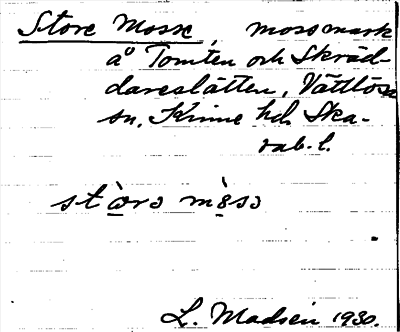 Store Mosse, mossmark
å Tomten och Skräd-
dareslätten, Vättlösa
sn. Kinne hd. Ska-
rab. l.
stòrə mòsə
L. Madsén 1930.